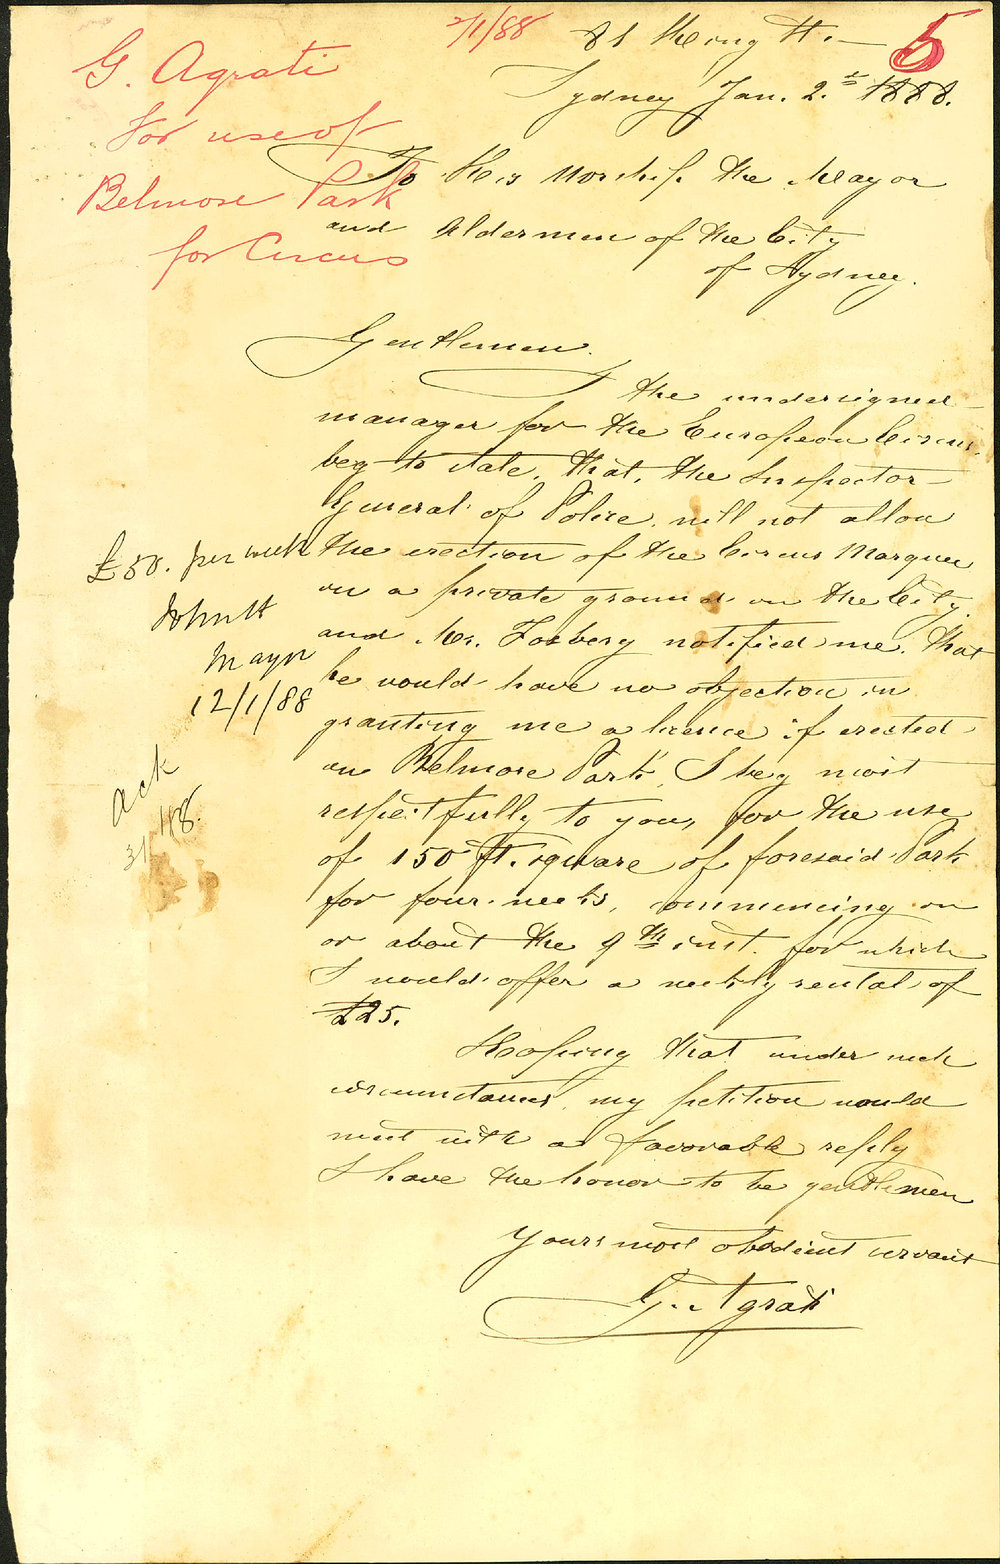 2/1/88
5
G. Agrati
For use of
Belmore Park
for Circus
81 King St. –
Sydney Jan. 2. 1888.
To His Worship the Mayor
and Aldermen of the City
of Sydney.
Gentlemen.
the undersigned
manager for the European Circus,
beg to state, that, the Inspector
General of Police will not allow
the erection of the Circus Marquee
on a private ground in the City,
and Mr. Fosbery notified me, that
he would have no objection in
granting me a licence if erected
on Belmore Park, I beg most
respectfully to you, for the use
of 150 ft. square of foresaid Park
for four weeks, commencing on
or about the 9th inst. for which
I would offer a weekly rental of
£25.
Hoping that under such
circumstances, my petition would
meet with a favorable reply
I have the honor to be gentlemen
Yours most obedient servant
G. Agrati
£50. per week
John H
Mayor
12/1/88
Ack